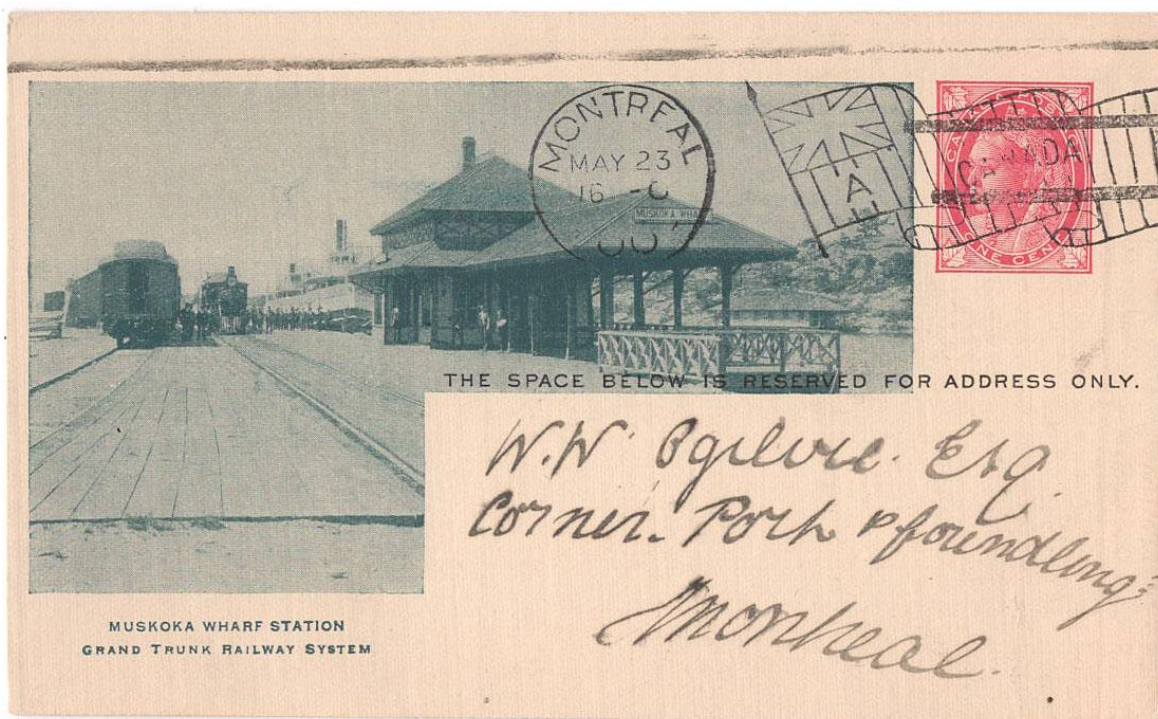 MONTREAL
MAY 23
16 - 0
00
A
CANADA
CANADA POSTAGE
ONE CENT
MUSKOKA WHA
THE SPACE BELOW IS RESERVED FOR ADDRESS ONLY.
W.W Ogilvie. Esq
Corner. Port & foundling
Montreal.
MUSKOKA WHARF STATION
GRAND TRUNK RAILWAY SYSTEM